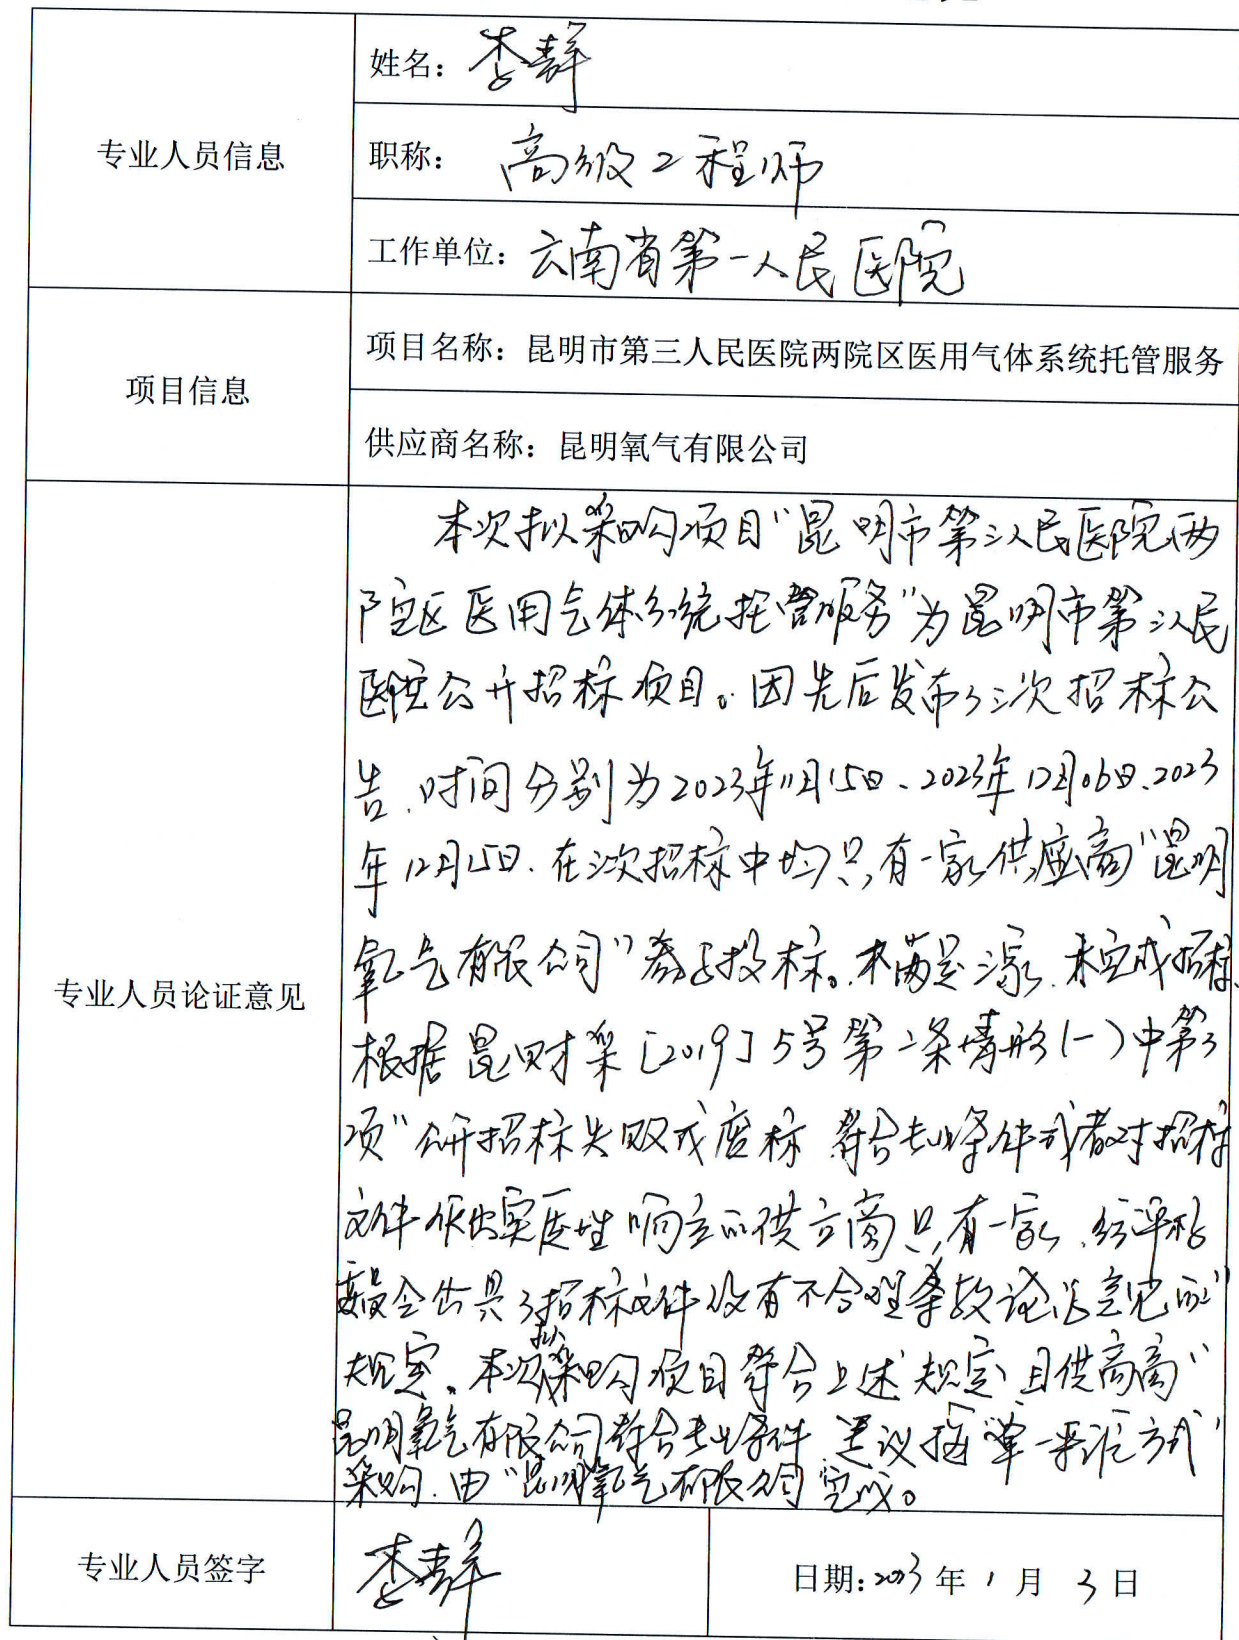 专业人员信息
姓名：李群
职称：高级工程师
工作单位：云南省第一人民医院
项目信息
项目名称：昆明市第三人民医院两院区医用气体系统托管服务
供应商名称：昆明氧气有限公司
专业人员论证意见
本次拟采购项目"昆明市第三人民医院两
院区医用气体系统托管服务"为昆明市第三人民
医院公开招标项目。因先后发布了三次招标公
告，时间分别为2023年11月15日、2023年12月06日、2023
年12月25日，在三次招标中均只有一家供应商"昆明
氧气有限公司"参与投标。未满足三家，未完成招标，
根据昆财采〔2019〕5号第二条情形(一)中第3
项"公开招标失败或废标，符合专业条件或者对招标
文件作出实质性响应的供应商只有一家，经评标
委员会出具了招标文件没有不合理条款论证意见的"
规定。本次拟采购项目符合上述规定，且供应商"
昆明氧气有限公司符合专业条件，建议按"单一来源方式"
采购，由"昆明氧气有限公司"完成。
专业人员签字
李群
日期：2023年1月3日